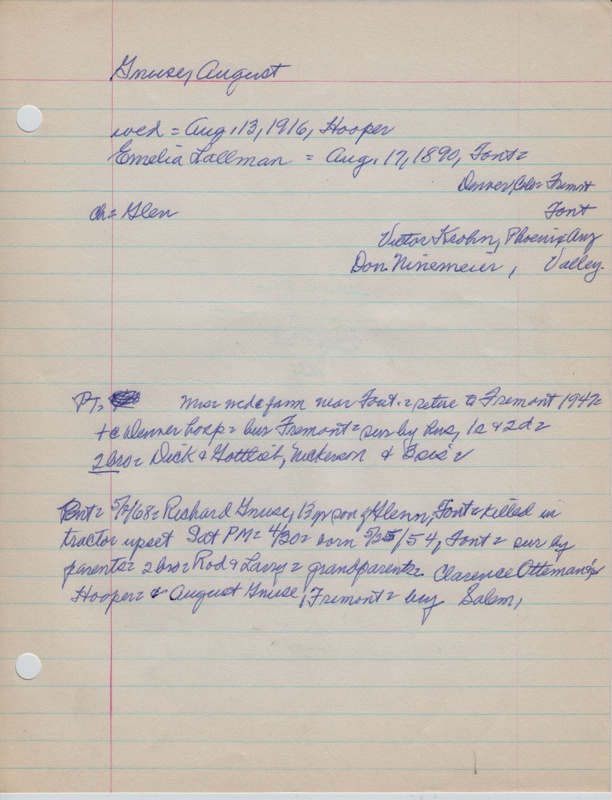 Gnuse, August
wed = Aug. 13, 1916, Hooper
Emelia Lallman = Aug. 17, 1890, Font =
Denver, Colo = Fremont
ch = Glen
Font
Victor Keohn, Phoenix Arz
Don Ninemeier, Valley.
PT = farm near Font. = retire to Fremont 1947 =
Denver hosp = bur Fremont = sur by hus, 1s & 2d =
2 bro = Dick & Gottlieb, Nickerson & 3 sis =
5/2/68 = Richard Gnuse, 13 yr son of Glenn, Font = killed in
tractor upset Sat PM = 4/30 = born 5/25/54, Font = sur by
parents = 2 bro = Rod & Larry = grandparents = Clarence Otteman's
Hooper = & August Gnuse, Fremont = bur Salem,